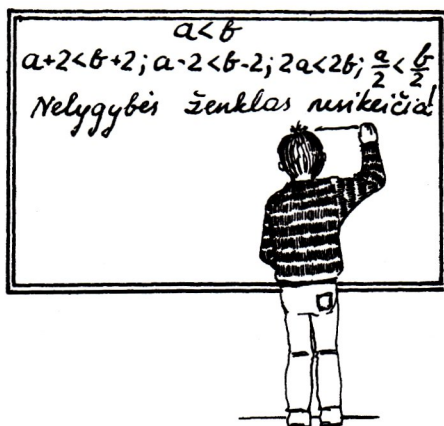 a<b
a+2<b+2; a-2<b-2; 2a<2b; a/2<b/2
Nelygybės ženklas nesikeičia!